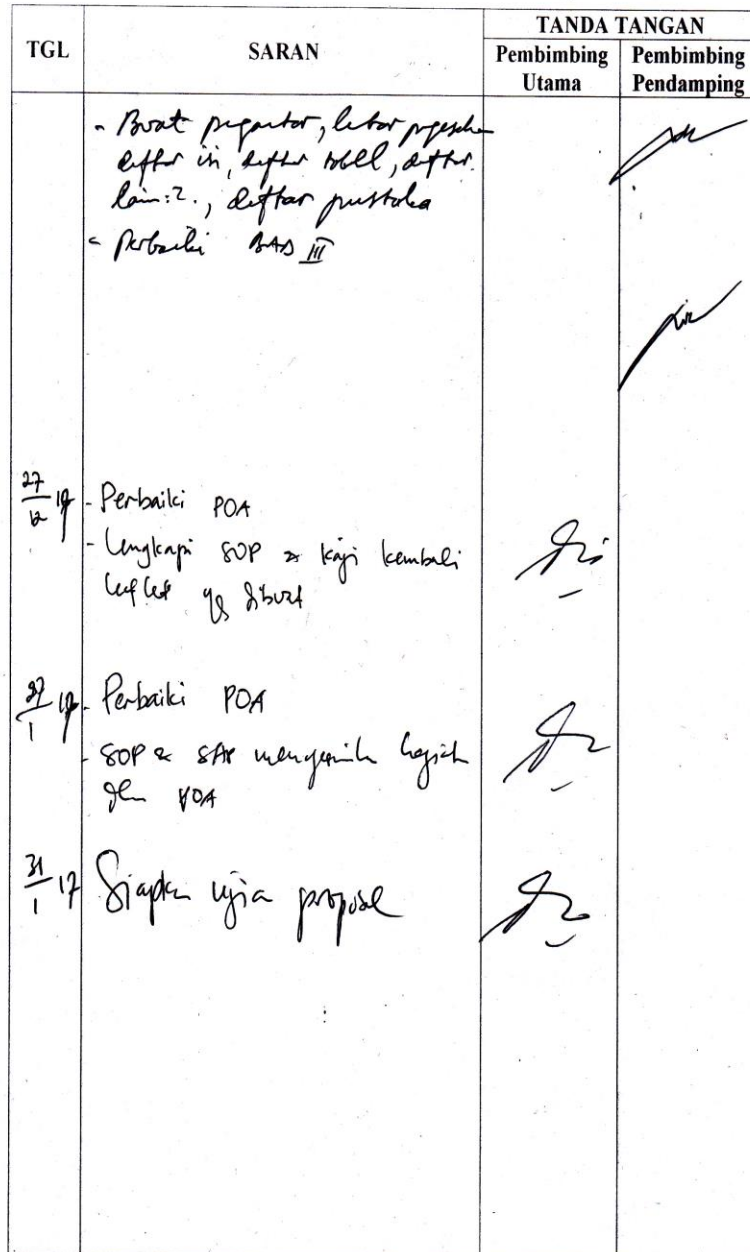 TGL
SARAN
TANDA TANGAN
Pembimbing Utama
Pembimbing Pendamping
- Buat pegantar, lebar
daftar isi, daftar tabel, daftar
lain:2., daftar pustaka
- Perbaiki BAB III
27/12 17
- Perbaiki POA
- Lengkapi SOP & kaji kembali
leaflet yg dibuat
27/1 17
- Perbaiki POA
- SOP & SAP
POA
31/1 17
Siapkan ujian proposal